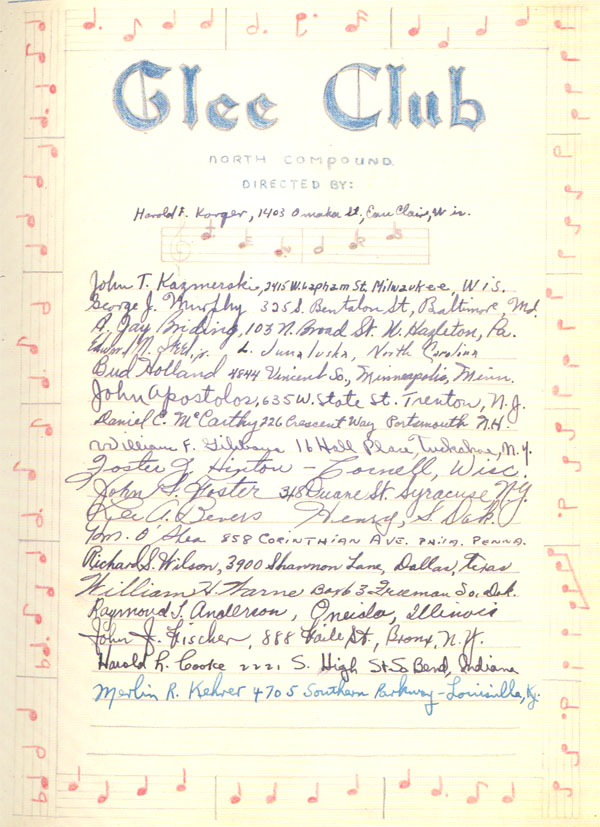 Glee Club
NORTH COMPOUND
DIRECTED BY:
Harold E. Korger, 1403 Omaha St, Eau Claire, Wis.
John T. Kazmerski, 2415 W. Lapham St, Milwaukee, Wis.
George J. Murphy 325 S. Bentalon St, Baltimore, Md.
A. Jay 103 N. Broad St. W. Hazleton, Pa.
Edward N. Jr. L. Junaluska, North Carolina
Bud Holland 4844 Vincent So., Minneapolis, Minn.
John Apostolos, 635 W. State St. Trenton, N.J.
Daniel C. McCarthy 226 Crescent Way Portsmouth N.H.
William F. 16 Hall Place, Tuckahoe, N.Y.
Foster Hinton - Cornell, Wisc.
John Foster 348 Duane St. Syracuse N.Y.
A. Bevers Henry, S. Dak.
O'Shea 858 CORINTHIAN AVE. PHILA. PENNA.
Richard S. Wilson, 3900 Shannon Lane, Dallas, Texas
William H. Warne Box 63 Freeman So. Dak.
Raymond J. Anderson, Oneida, Illinois
John J. Fischer, 888 Faile St, Bronx, N.Y.
Harold R. Cooke 2221 S. High St So Bend, Indiana
Merlin R. Kehrer 4705 Southern Parkway - Louisville, Ky.